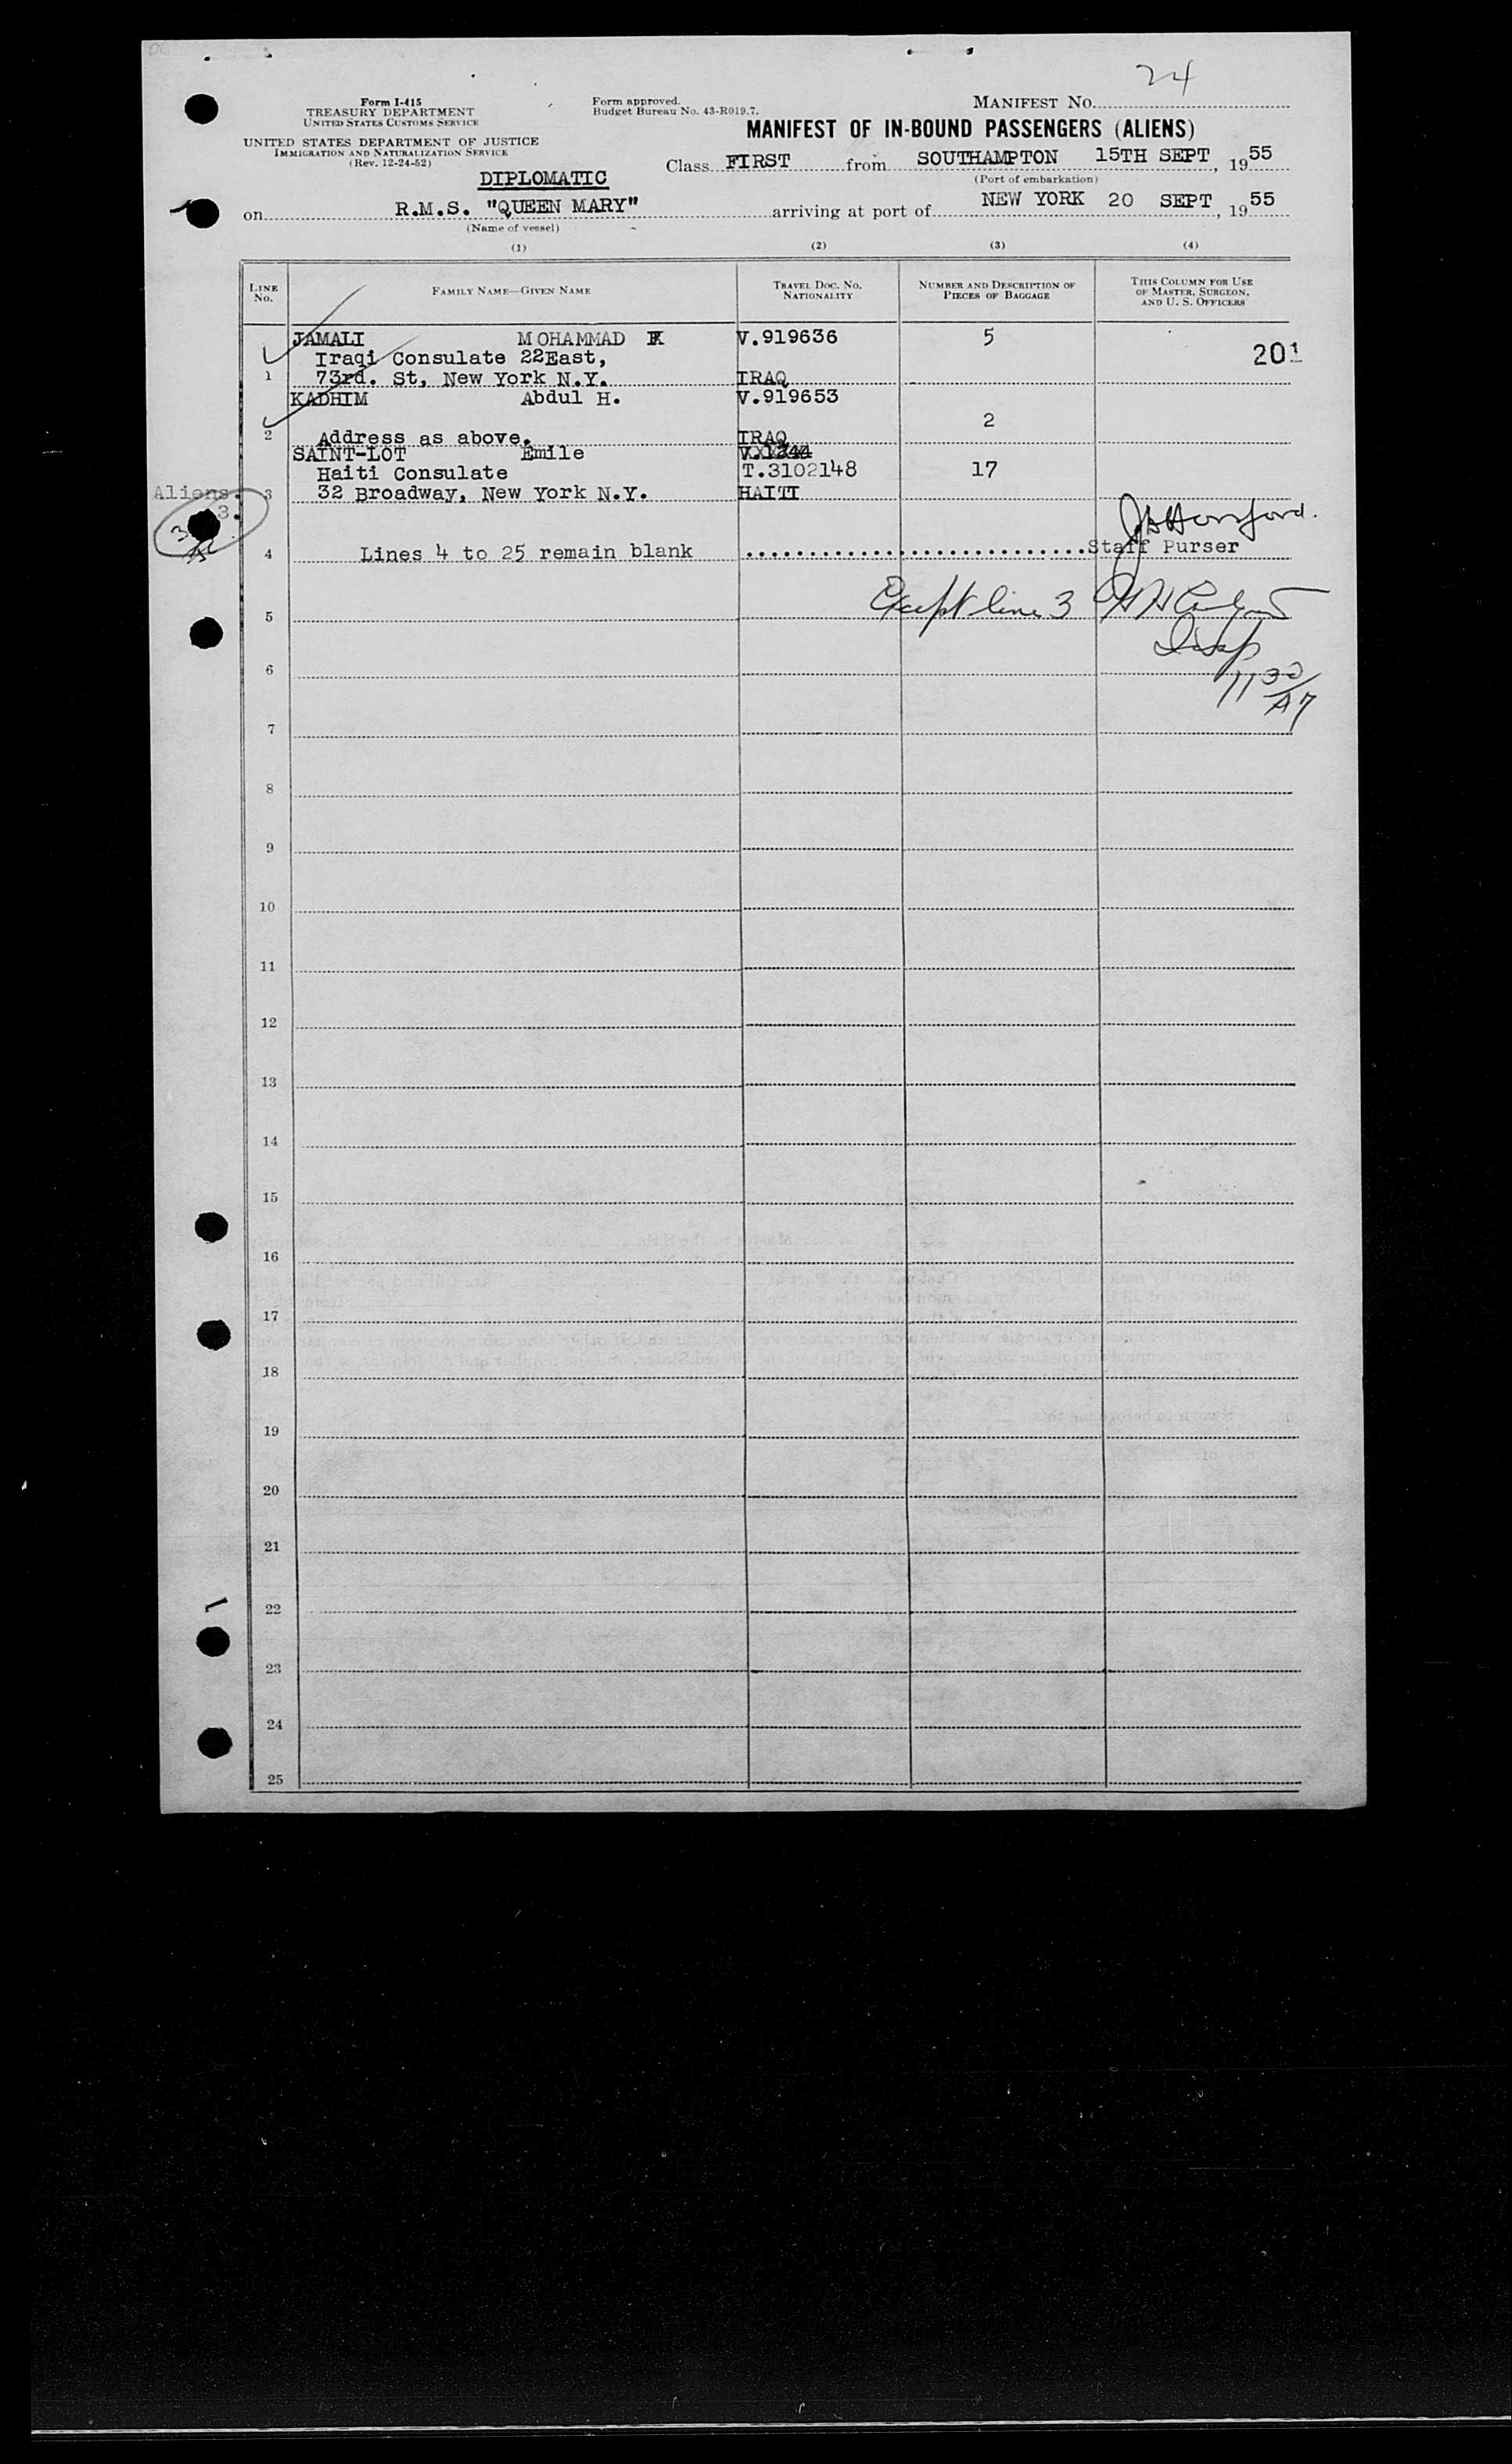 24
Form I-415
TREASURY DEPARTMENT
UNITED STATES CUSTOMS SERVICE
Form approved.
Budget Bureau No. 43-R019.7.
MANIFEST NO.
MANIFEST OF IN-BOUND PASSENGERS (ALIENS)
UNITED STATES DEPARTMENT OF JUSTICE
IMMIGRATION AND NATURALIZATION SERVICE
(Rev. 12-24-52)
Class FIRST from SOUTHAMPTON 15TH SEPT, 1955
(Port of embarkation)
DIPLOMATIC
on R.M.S. "QUEEN MARY" arriving at port of NEW YORK 20 SEPT, 1955
(Name of vessel)
(1) (2) (3) (4)
LINE NO. FAMILY NAME—GIVEN NAME TRAVEL DOC. NO. NATIONALITY NUMBER AND DESCRIPTION OF PIECES OF BAGGAGE THIS COLUMN FOR USE OF MASTER, SURGEON, AND U. S. OFFICERS
JAMALI MOHAMMAD V.919636 5
Iraqi Consulate 22East, 201
1 73rd. St, New York N.Y. IRAQ
KADHIM Abdul H. V.919653
2
2 Address as above. IRAQ
SAINT-LOT Emile
Haiti Consulate T.3102148 17
Aliens. 3 32 Broadway, New York N.Y. HAITI
3.
4 Lines 4 to 25 remain blank Staff Purser
Except line 3
5
6
1130
7
8
9
10
11
12
13
14
15
16
17
18
19
20
21
22
23
24
25